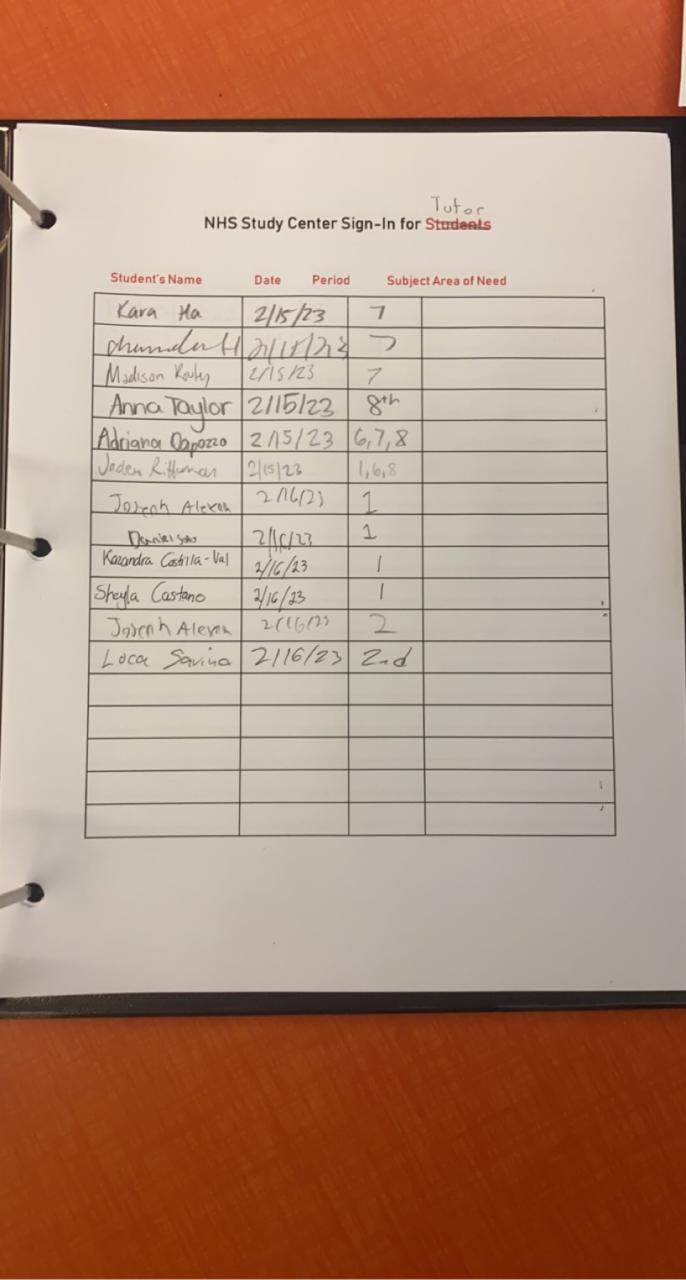 Tutor
NHS Study Center Sign-In for Students
Student's Name Date Period Subject Area of Need
Kara Ha 2/15/23 7
2/15/23 7
Madison 2/15/23 7
Anna Taylor 2/15/23 8th
Adriana Capozzo 2/15/23 6,7,8
Jaden 2/15/23 1,6,8
Joseph 2/16/23 1
Daniel 2/16/23 1
Kazandra Castilla-Val 2/16/23 1
Sheyla Castano 2/16/23 1
Joseph 2/16/23 2
Luca Savino 2/16/23 2nd